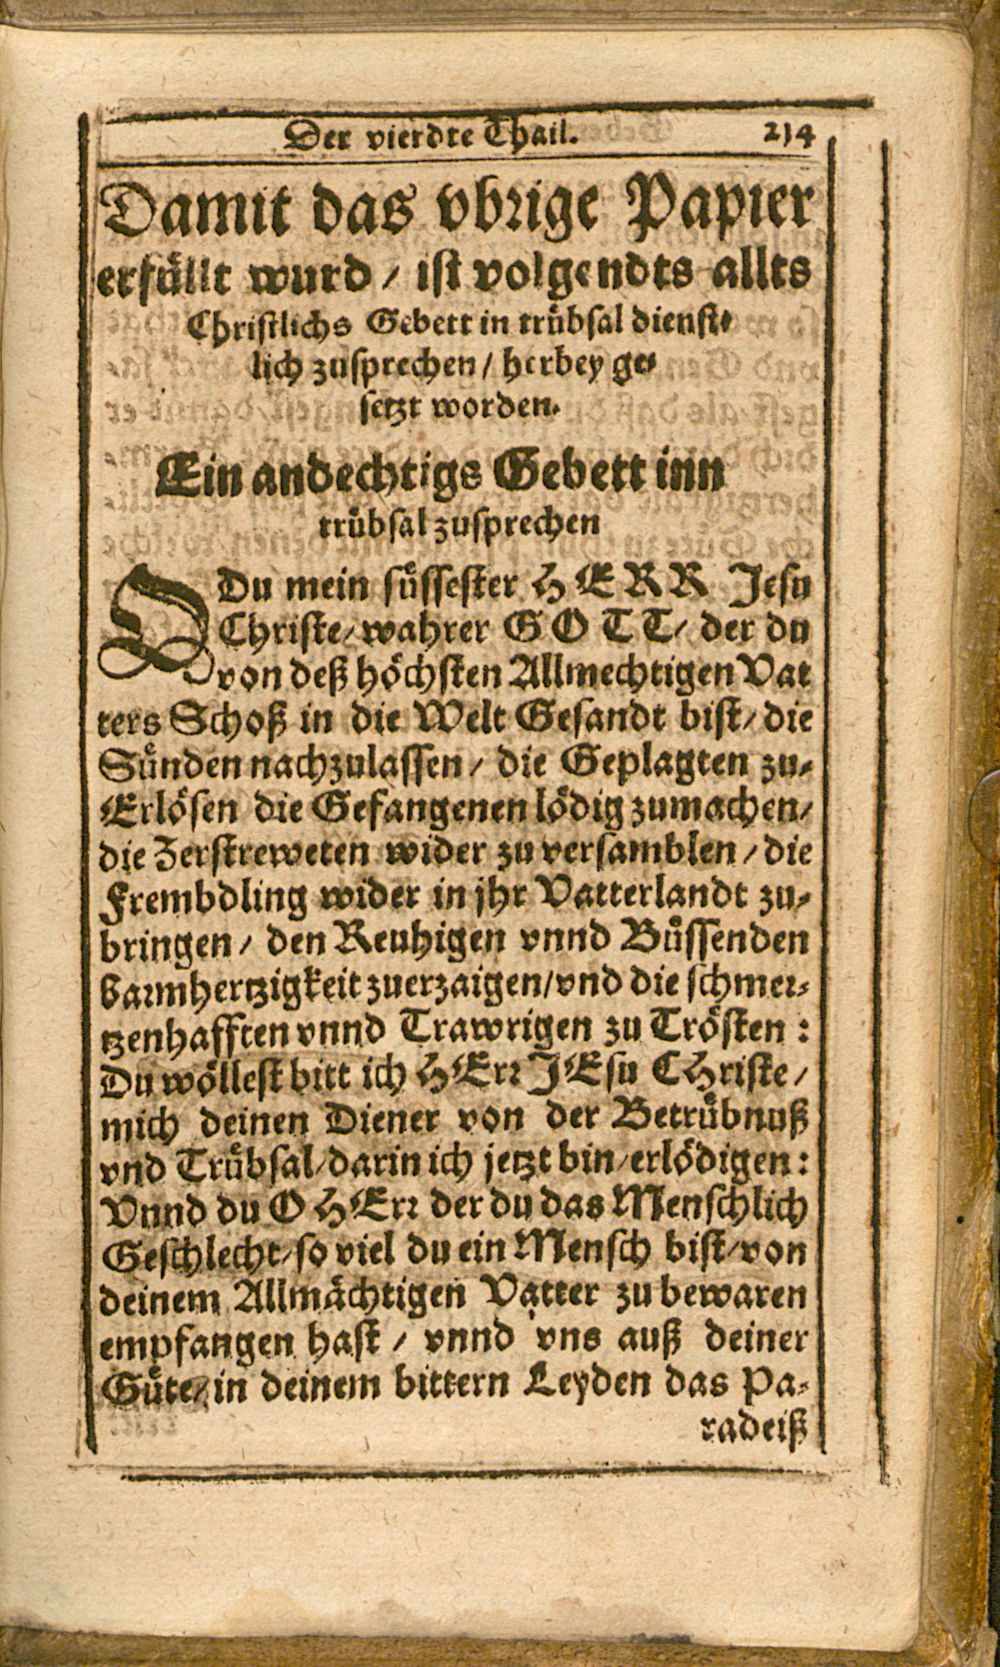 Der vierdte Thail. 214
Damit das vbrige Papier
erfüllt wurd / ist volgendts alles
Christlichs Gebett in trübsal dienst-
lich zusprechen / herbey ge-
setzt worden.
Ein andechtigs Gebett inn
trübsal zusprechen
O Du mein süssester HERR Jesu
Christe / wahrer GOTT / der du
von deß höchsten Allmechtigen Vat
ters Schoß in die Welt Gesandt bist / die
Sünden nachzulassen / die Geplagten zu-
Erlösen die Gefangenen lödig zumachen /
die Zerstreweten wider zu versamblen / die
Frembdling wider in jhr Vatterlandt zu-
bringen / den Reuhigen vnnd Büssenden
barmhertzigkeit zuerzaigen / vnd die schmer-
tzenhafften vnnd Trawrigen zu Trösten :
Du wöllest bitt ich HErr JEsu CHriste /
mich deinen Diener von der Betrübnuß
vnd Trübsal / darin ich jetzt bin / erlödigen :
Vnnd du O HErr der du das Menschlich
Geschlecht / so viel du ein Mensch bist / von
deinem Allmächtigen Vatter zu bewaren
empfangen hast / vnnd vns auß deiner
Güte / in deinem bittern Leyden das Pa-
radeiß